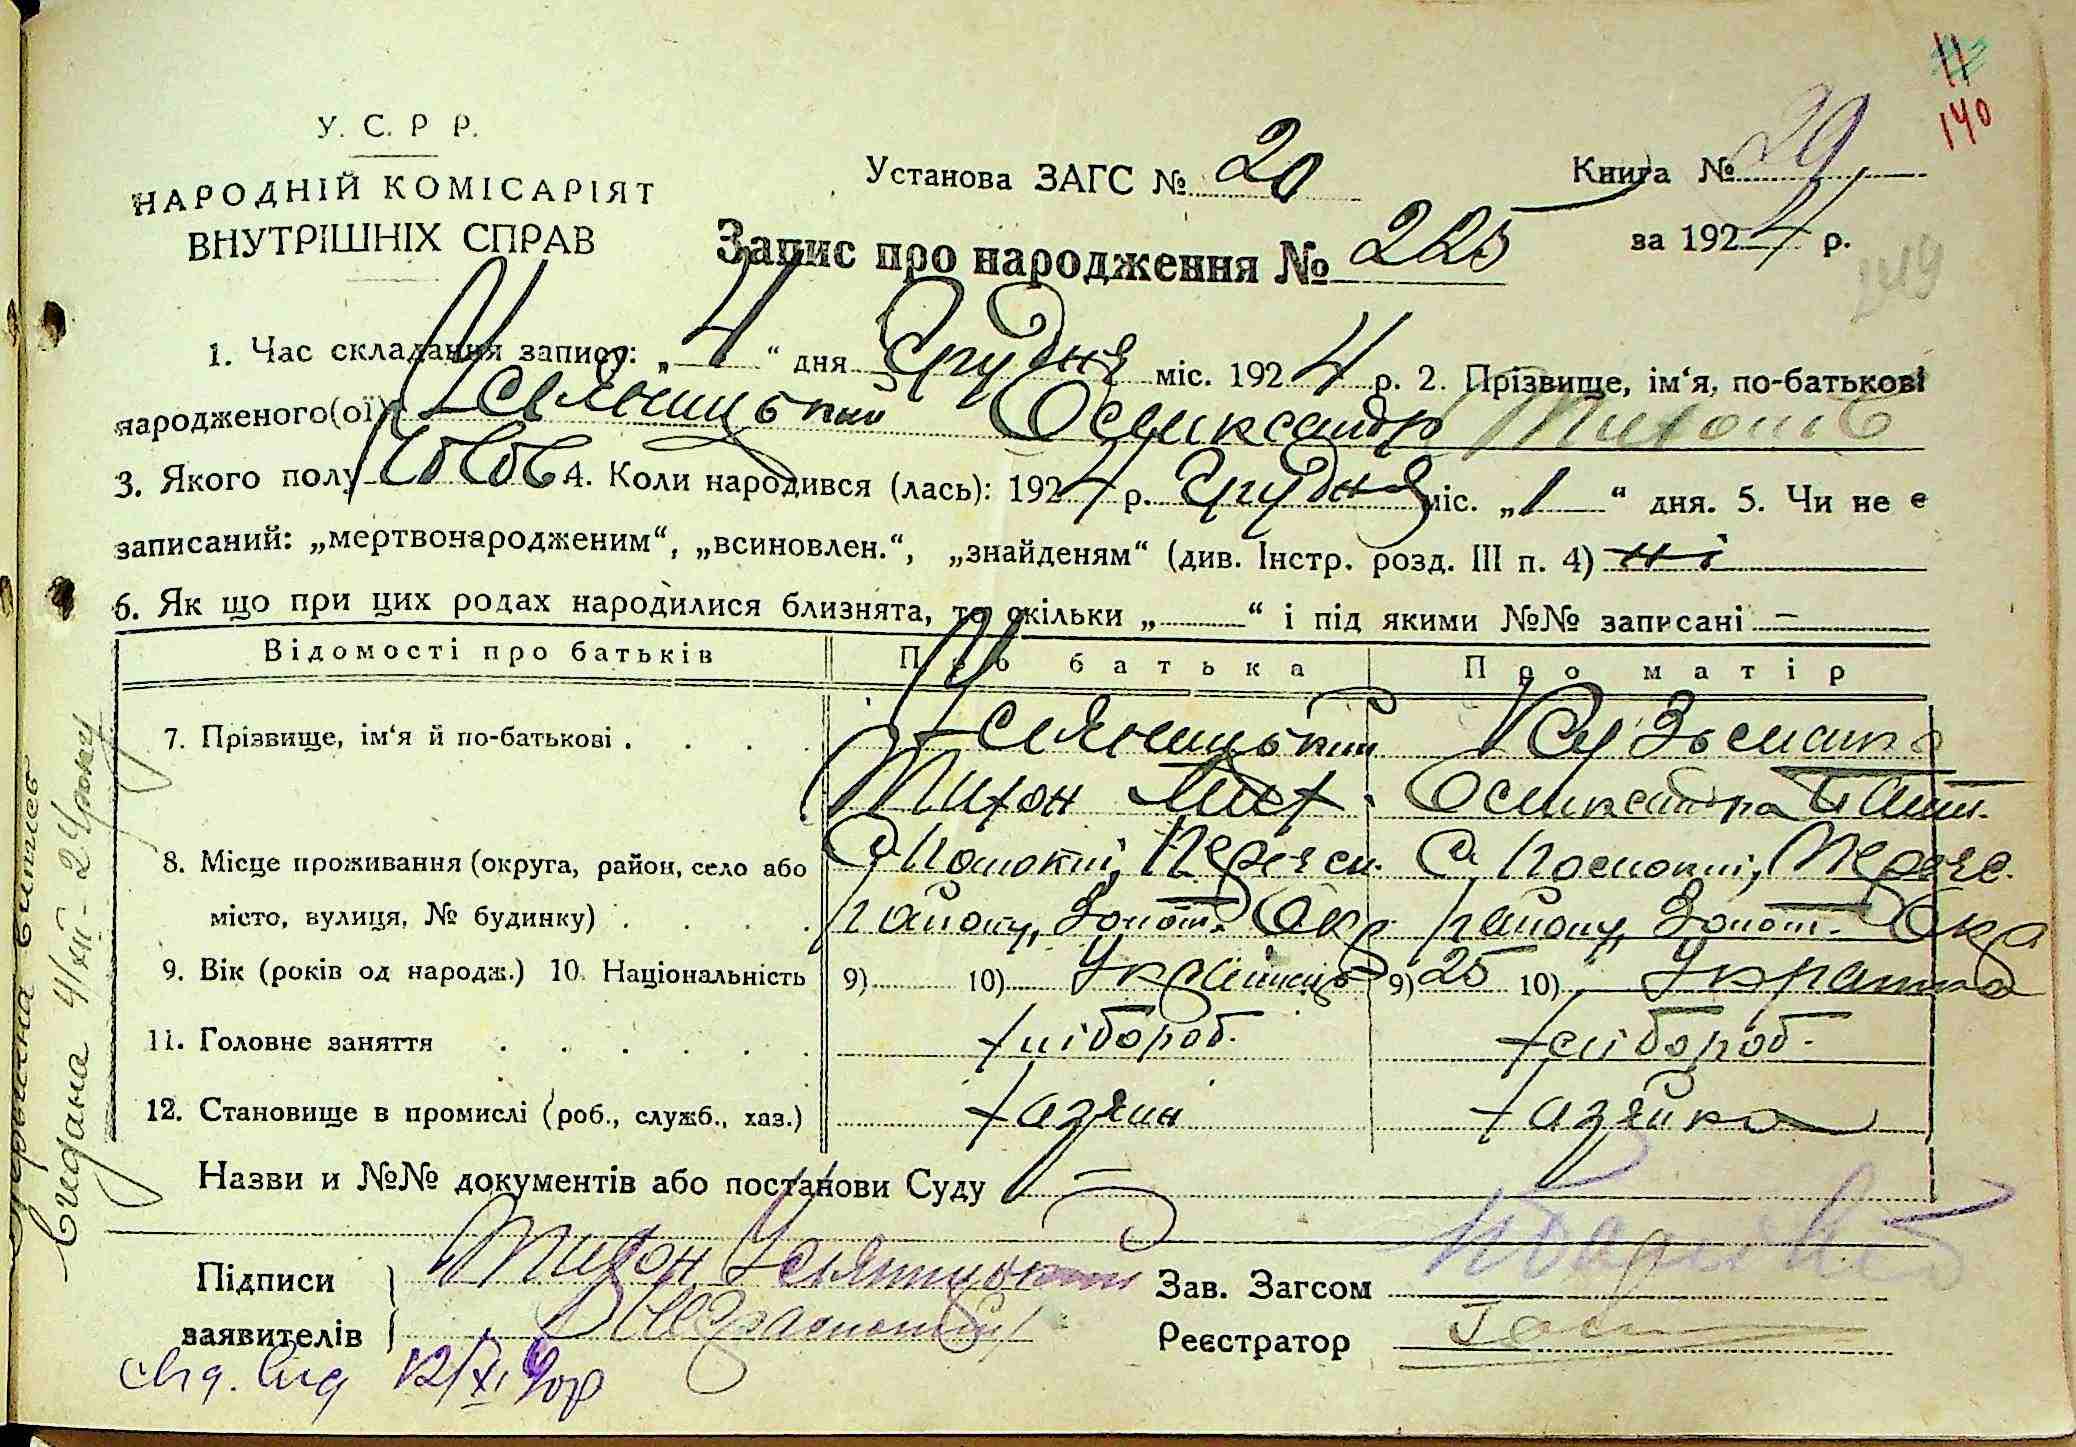 11
140
У. С. Р Р.
НАРОДНІЙ КОМІСАРІЯТ
ВНУТРІШНІХ СПРАВ
Установа ЗАГС № 20
Книга № 29
Запис про народження № 225
за 1924 р.
1. Час складання запису: „4“ дня Грудня міс. 1924 р. 2. Прізвище, ім‘я, по-батькові
народженого(ої) Усяницький Олександр Тихонів
3. Якого полу Чолов 4. Коли народився (лась): 1924 р. Грудня міс. „1“ дня. 5. Чи не є
записаний: „мертвонародженим“, „всиновлен.“, „знайденям“ (див. Інстр. розд. III п. 4) ні
6. Як що при цих родах народилися близнята, то скільки „ “ і під якими №№ записані –
Відомості про батьків Про батька Про матір
7. Прізвище, ім‘я й по-батькові . . . . Усяницький Кузьменко
Тихон Олександра
8. Місце проживання (округа, район, село або С. Помоклі, Переяс. С. Помоклі, Переяс.
місто, вулиця, № будинку) . . . . району, Золот. Окр району, Золот. Окр
9. Вік (років од народж.) 10. Національність 9) 10) Українець 9) 25 10) Українка
11. Головне заняття . . . . . . хліبороб. хлібороб.
12. Становище в промислі (роб., служб., хаз.) хазяїн хазяйка
Назви и №№ документів або постанови Суду –
Підписи Тихон Зав. Загсом
заявителів Реєстратор
Видана 4/XII-24 року